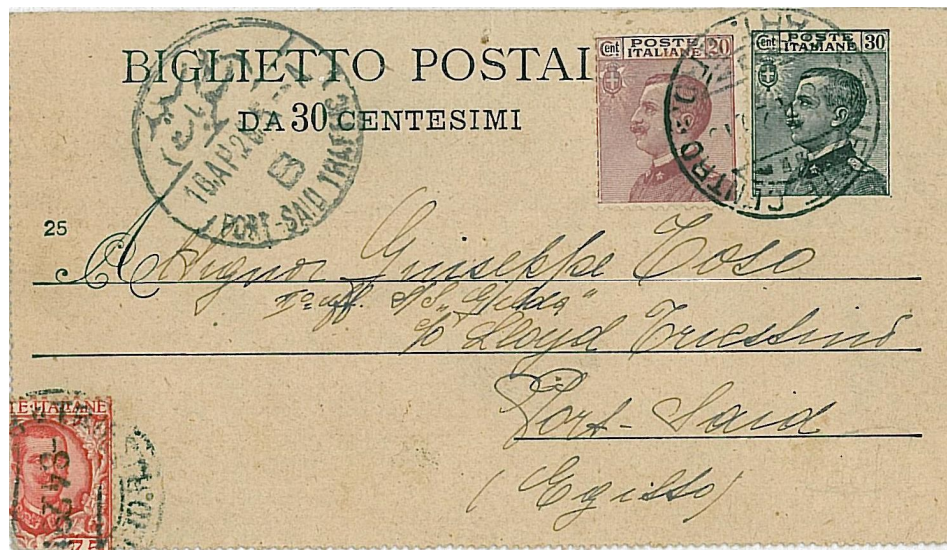 BIGLIETTO POSTAL
DA 30 CENTESIMI
Cent POSTE ITALIANE 20
Cent POSTE ITALIANE 30
16 AP 26
PORT-SAID TRAFFIC
CENTRO
25
A Signor Giuseppe Toso
1º uff. S/S „Gilda"
c/o Lloyd Triestino
Port-Said
(Egitto)
TE ITALIANE